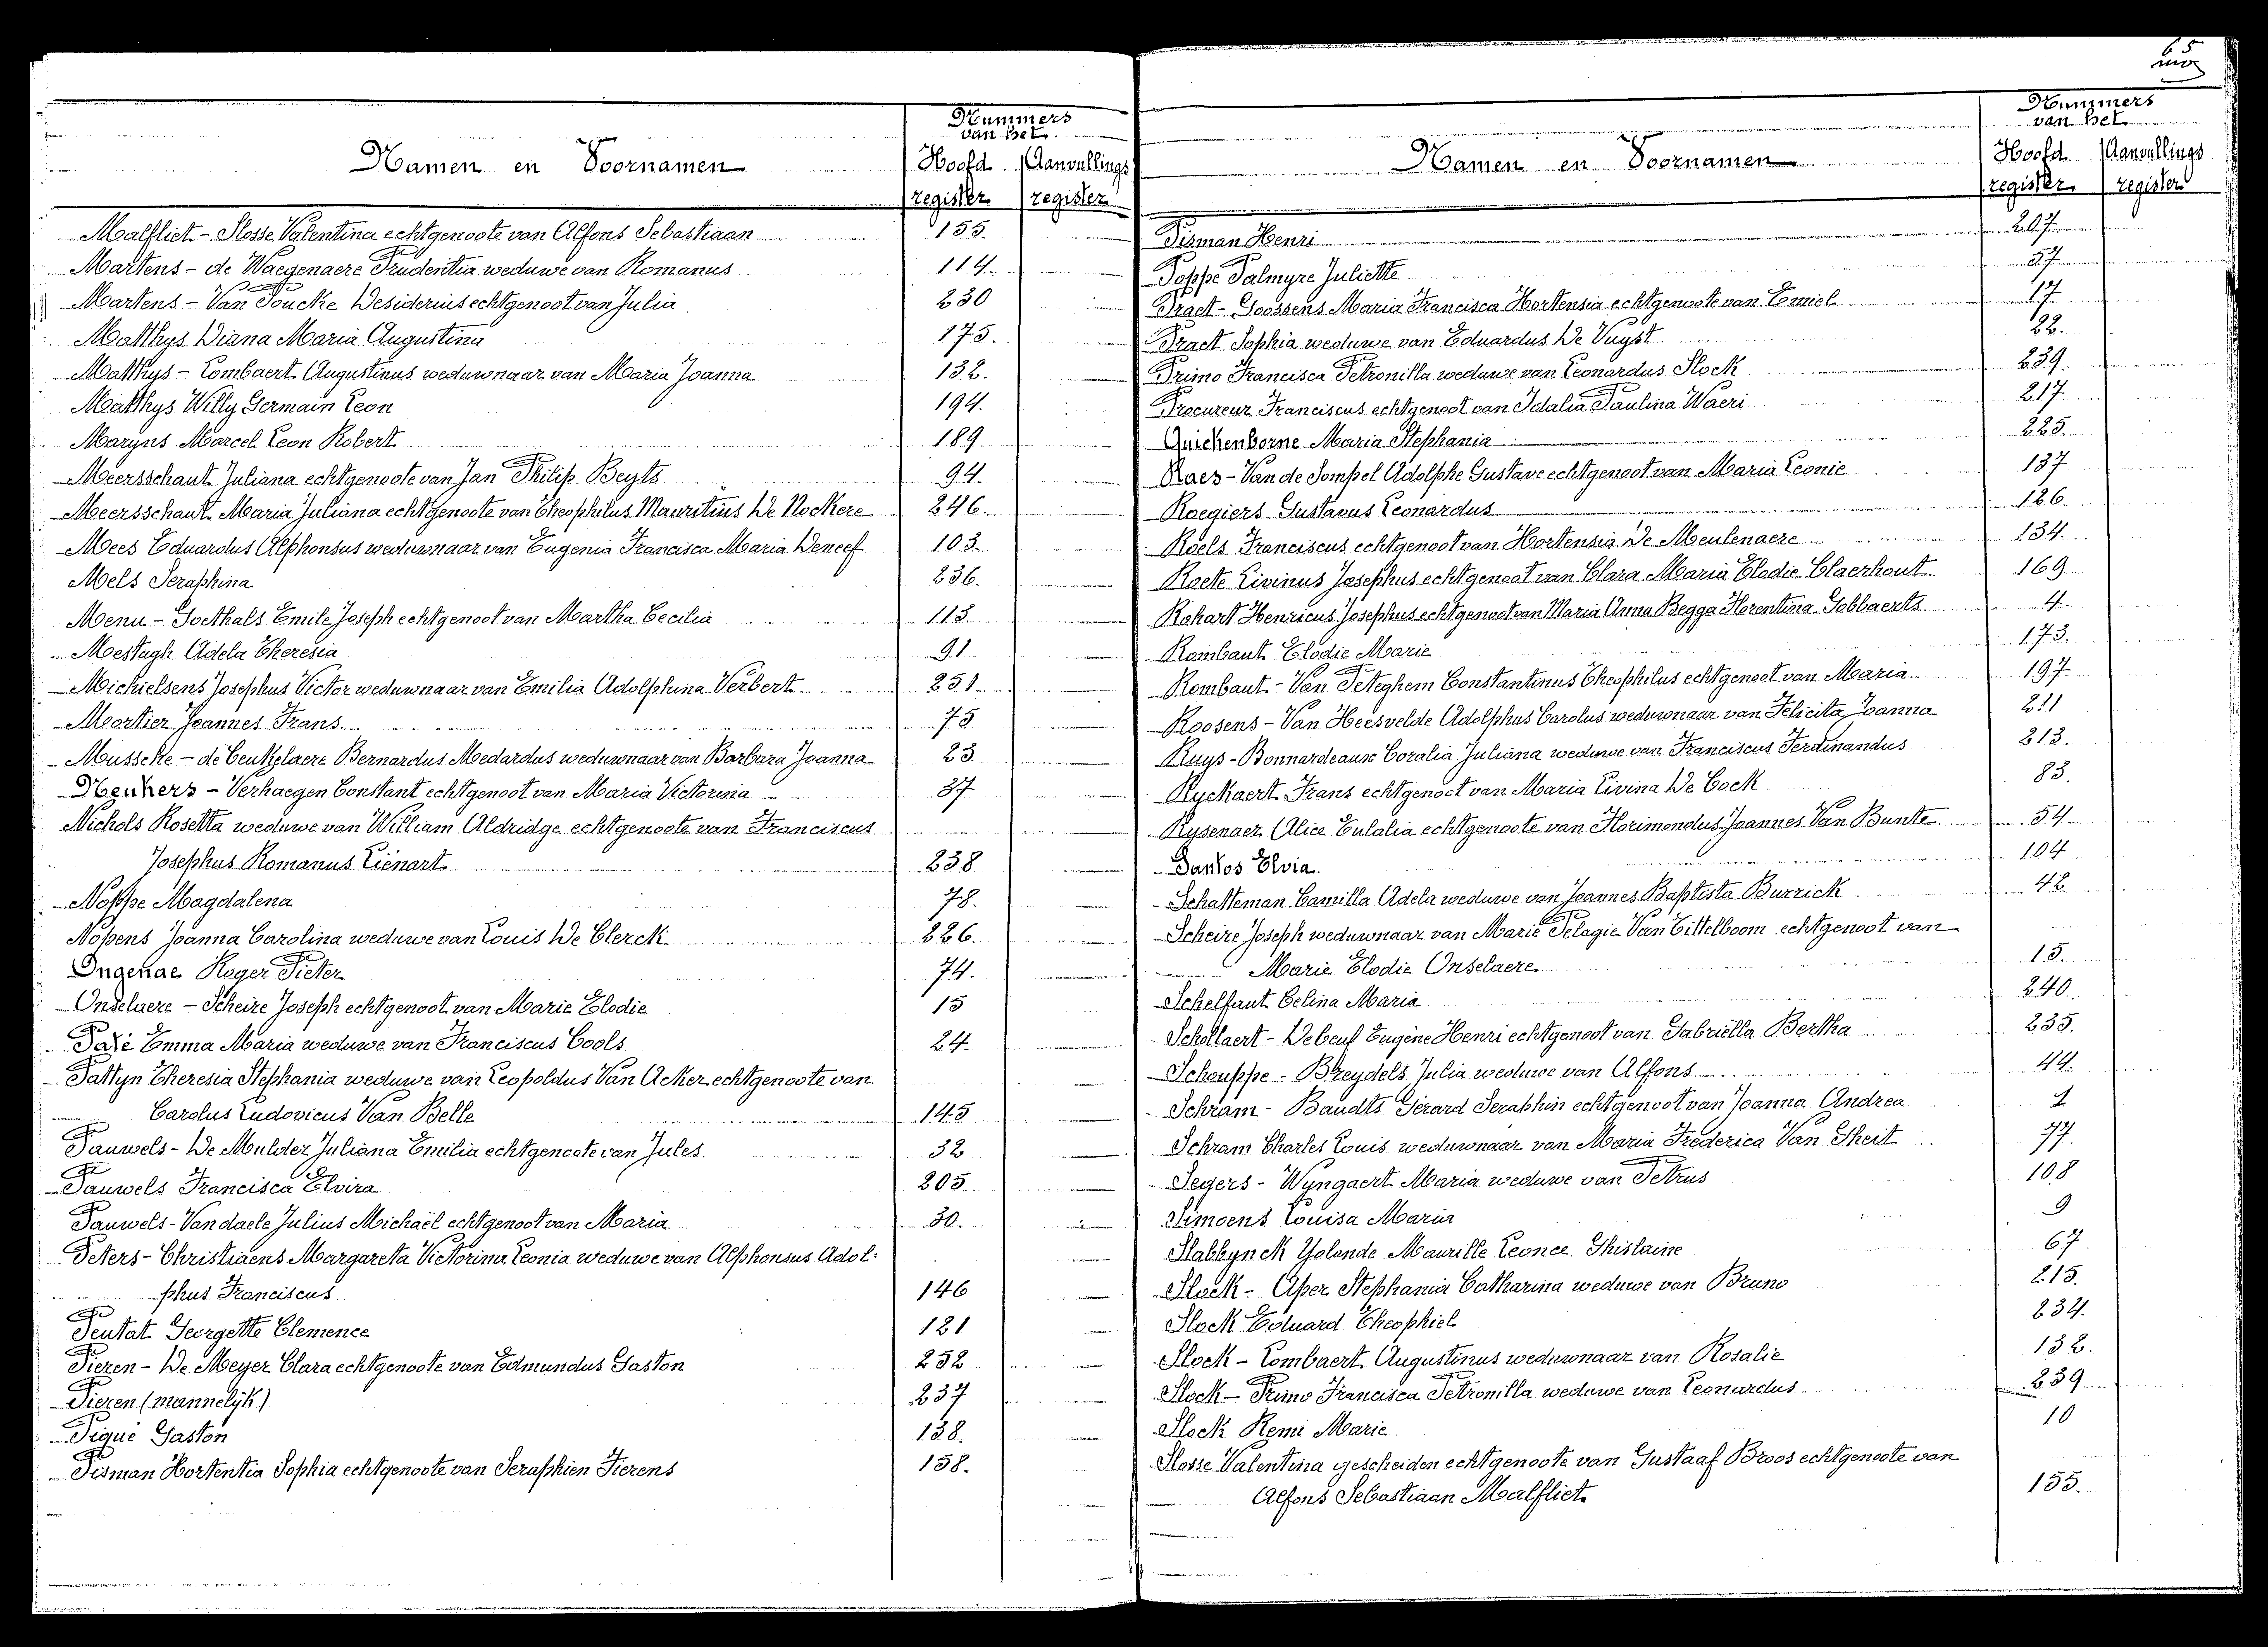 65
Nummers
van het
Namen en Voornamen
Hoofd Aanvullings
register register
Malfliet - Slosse Valentina echtgenoote van Alfons Sebastiaan 155.
Martens - de Waegenaere Prudentia weduwe van Romanus 114.
Martens - Van Poucke Desiderius echtgenoot van Julia 230
Matthys Diana Maria Augustina 175.
Matthys - Lombaert Augustinus weduwnaar van Maria Joanna 132.
Matthys Willy Germain Leon 194.
Maryns Marcel Leon Robert 189
Meersschaut Juliana echtgenoote van Jan Philip Beyts 94.
Meersschaut Maria Juliana echtgenoote van Theophilus Mauritius De Nockere 246.
Mees Eduardus Alphonsus weduwnaar van Eugenia Francisca Maria Deneef 103.
Mels Seraphina 236.
Menu - Goethals Emile Joseph echtgenoot van Martha Cecilia 113.
Mestagh Adela Theresia 91
Michielsens Josephus Victor weduwnaar van Emilia Adolphina Verbert 251
Mortier Joannes Frans. 75
Mussche - de Ceukelaere Bernardus Medardus weduwnaar van Barbara Joanna 23.
Neukers - Verhaegen Constant echtgenoot van Maria Victorina 37
Nichols Rosetta weduwe van William Aldridge echtgenoote van Franciscus
Josephus Romanus Liénart 238
Noppe Magdalena 78.
Nopens Joanna Carolina weduwe van Louis De Clerck 226.
Ongenae Roger Pieter 74.
Onselaere - Scheire Joseph echtgenoot van Marie Elodie 15
Paré Emma Maria weduwe van Franciscus Cools 24.
Pattyn Theresia Stephania weduwe van Leopoldus Van Acker echtgenoote van
Carolus Ludovicus Van Belle 145
Pauwels - De Mulder Juliana Emilia echtgenoote van Jules. 32
Pauwels Francisca Elvira 205
Pauwels - Vandaele Julius Michaël echtgenoot van Maria 30.
Peters - Christiaens Margareta Victorina Leonia weduwe van Alphonsus Adol-
phus Franciscus 146
Peutat Georgette Clemence 121
Piezen - De Meyer Clara echtgenoote van Edmundus Gaston 232
Piezen (mannelijk) 237
Piqué Gaston 138.
Pisman Hortentia Sophia echtgenoote van Seraphien Fierens 158.
Nummers
van het
Namen en Voornamen
Hoofd Aanvullings
register register
Pisman Henri 207
Poppe Palmyre Juliette 57
Praet - Goossens Maria Francisca Hortensia echtgenoote van Emiel 17
Praet Sophia weduwe van Eduardus De Vuyst 22.
Primo Francisca Petronilla weduwe van Leonardus Slock 239.
Procureur Franciscus echtgenoot van Idalia Paulina Waeri 217
Quickenborne Maria Stephania 225.
Raes - Van de Sompel Adolphe Gustave echtgenoot van Maria Leonie 137
Raegiers Gustavus Leonardus 126.
Roels Franciscus echtgenoot van Hortensia De Meulenaere 134.
Roete Livinus Josephus echtgenoot van Clara Maria Elodie Claerhout 169
Rohart Henricus Josephus echtgenoot van Maria Anna Begga Florentina Gobbaerts 4.
Rombaut Elodie Marie 173.
Rombaut - Van Peteghem Constantinus Theophilus echtgenoot van Maria 197
Roosens - Van Heesvelde Adolphus Carolus weduwnaar van Felicita Joanna 211
Ruys - Bonnardeaux Coralia Juliana weduwe van Franciscus Ferdinandus 213.
Ryckaert Frans echtgenoot van Maria Livina De Cock 83.
Rysenaer Alice Eulalia echtgenoote van Florimondus Joannes Van Bunte 54.
Santos Elvia. 104
Schatteman Camilla Adela weduwe van Joannes Baptista Burrick 42.
Scheire Joseph weduwnaar van Marie Pelagie Van Cittelboom echtgenoot van
Marie Elodie Onselaere 15.
Schelfaut Celina Maria 240.
Schollaert - Debeuf Eugène Henri echtgenoot van Gabriëlla Bertha 235.
Schouppe - Breydels Julia weduwe van Alfons 44.
Schram - Baudts Gérard Seraphin echtgenoot van Joanna Andrea 1
Schram Charles Louis weduwnaar van Maria Frederica Van Gheit 77.
Segers - Wyngaert Maria weduwe van Petrus 108
Simoens Louisa Maria 9
Slabbynck Yolande Maurille Leonce Ghislaine 67.
Slock - Aper Stephania Catharina weduwe van Bruno 215.
Slock Eduard Theophiel 234.
Slock - Lombaert Augustinus weduwnaar van Rosalie 132.
Slock - Primo Francisca Petronilla weduwe van Leonardus. 239
Slock Remi Marie 10
Slosse Valentina gescheiden echtgenoote van Gustaaf Broos echtgenoote van
Alfons Sebastiaan Malfliet. 155.